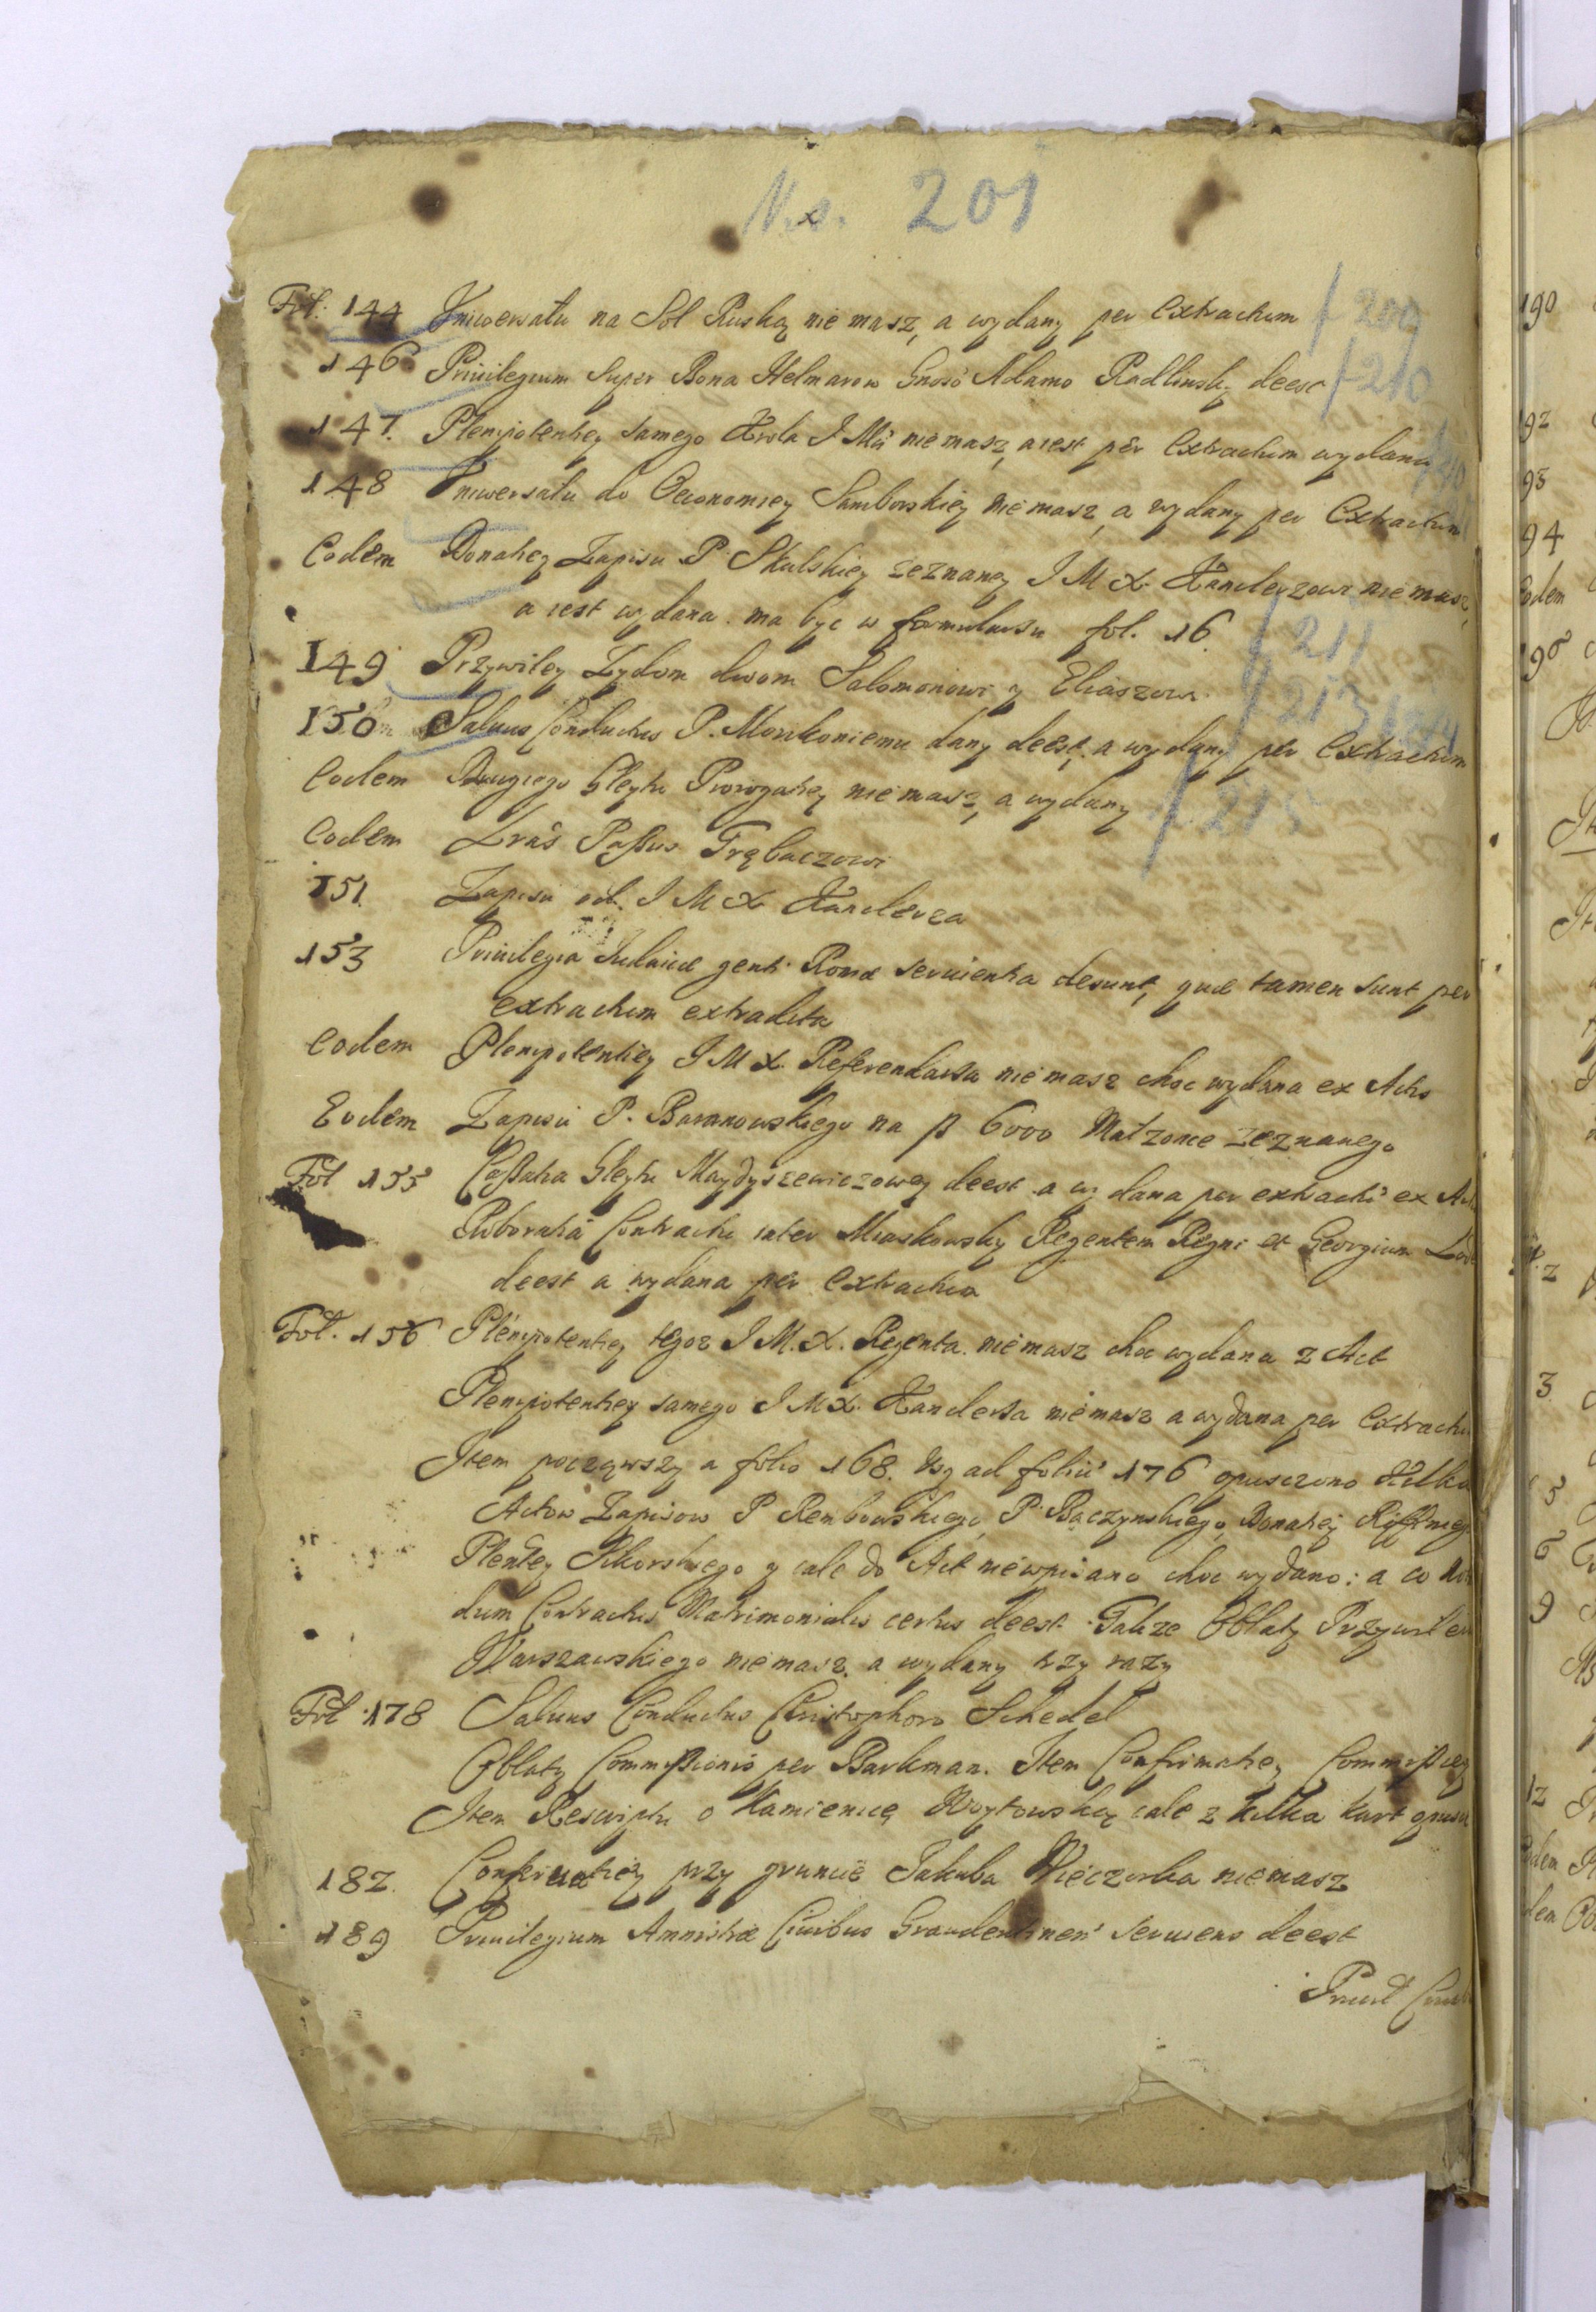 N.s. 201
Fol. 144 Uniwersału na Sol Ruską nie masz, a wydany per Extractum f 209
146 Priuilegium Super Bona Helmarow Gnoso Adamo Radlinsky deest f 210
147. Plenipotentiey samego Krola J Mci nie masz, a iest per Extractum wydana
148 Uniwersału do Oeconomiey Samborskiey nie masz, a wydany per Extractum
Eodem Donatiey Zapisu P. Skulskiey zeznaney J M X Kanclerzowi nie masz,
a iest wydana. ma byc w formularzu fol. 16. f 211
149 Przywiley Zydom dwom Salomonowi y Eliaszowi f 213
150 Saluus Conductus P. Morikoniemu dany deest, a wydany per Extractum
Eodem Drugiego Gleytu Prorogatiey nie masz, a wydany f 215
Eodem Lras Passus Trębaczowi
151. Zapisu od J M X Kanclerza
153 Priuilegia Iudaicae genti Romae seruientia desunt, quae tamen sunt per
extractum extradita
Eodem Plenipotentiey J M X. Referendarza nie masz choc wydana ex Actis
Eodem Zapisu P. Baranowskiego na fl 6000 Małzonce zeznanego
Fol 155 Cassatia Gleytu Maydyszewiczowey deest a wydana per extractu ex
Roboratia Contractu inter Miaskowsky Regentem Regni et Georgium
deest a wydana per Extractum
Fol. 156 Plenipotentiey tegoz J M. X. Regenta nie masz choc wydana z Act
Plenipotentiey samego J M X. Kanclerza nie masz a wydana per Extractu
Item począwszy a folio 168. usq ad foliu 176 opusczono kilka
Actow Zapisow P Rembowskiego, P. Bączynskiego, Donatiey
Plentey Sikorskiego y cale do Act nie wpisano choc wydano: a co
dum Contractus Matrimonialis certus deest. Takze Oblaty Przywileiu
Warszawskiego nie masz. a wydany trzy razy
Fol 178 Saluus Conductus Christophoro Schedel
Oblaty Commissionis per Barkman. Item Confirmatiey Commissiey
Item Rescriptu o Kamienicę Woytowską cale z kilka kart
182. przy gruncie Jakuba Wieczorka nie masz
189 Priuilegium Amnistiae Ciuibus Graudentinen seruiens deest